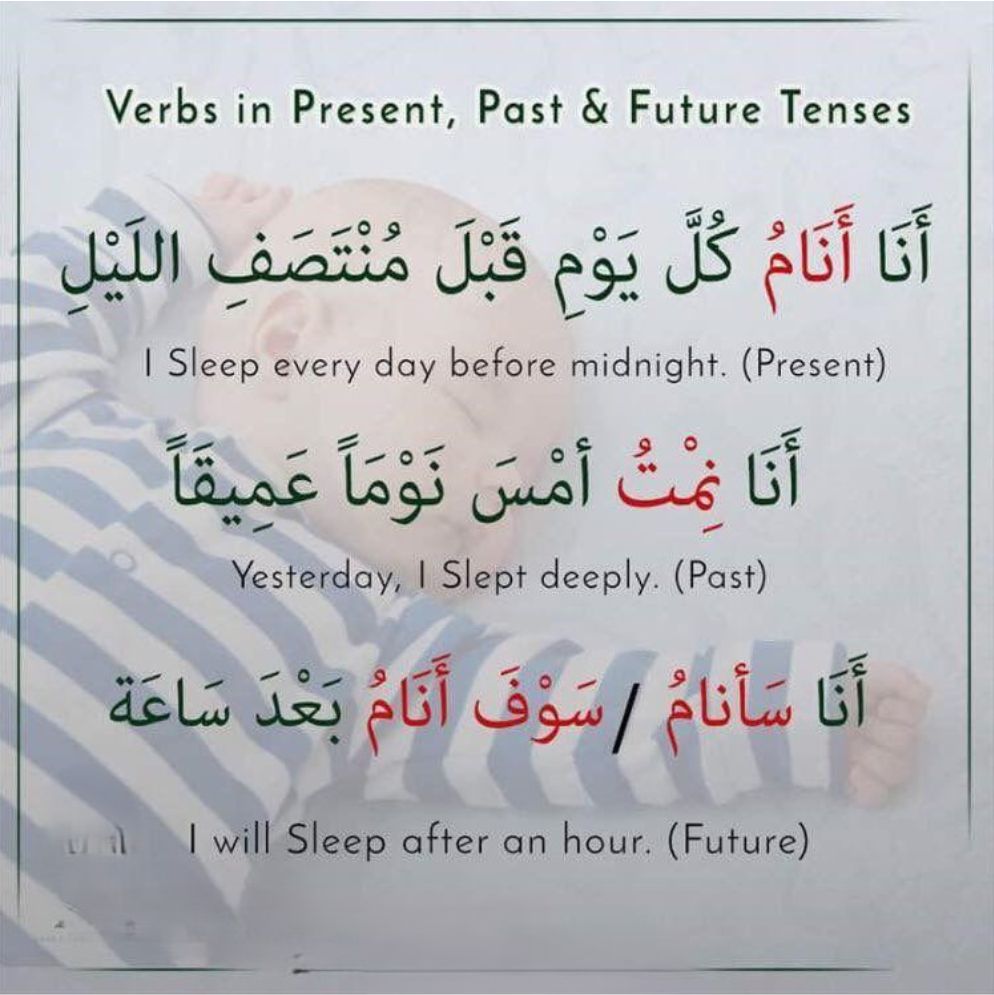 Verbs in Present, Past & Future Tenses
أَنَا أَنَامُ كُلَّ يَوْمِ قَبْلَ مُنْتَصَفِ اللَيْلِ
I Sleep every day before midnight. (Present)
أَنَا نِمْتُ أمْسَ نَوْمَاً عَمِيقَاً
Yesterday, I Slept deeply. (Past)
أَنَا سَأنامُ / سَوْفَ أَنَامُ بَعْدَ سَاعَة
I will Sleep after an hour. (Future)